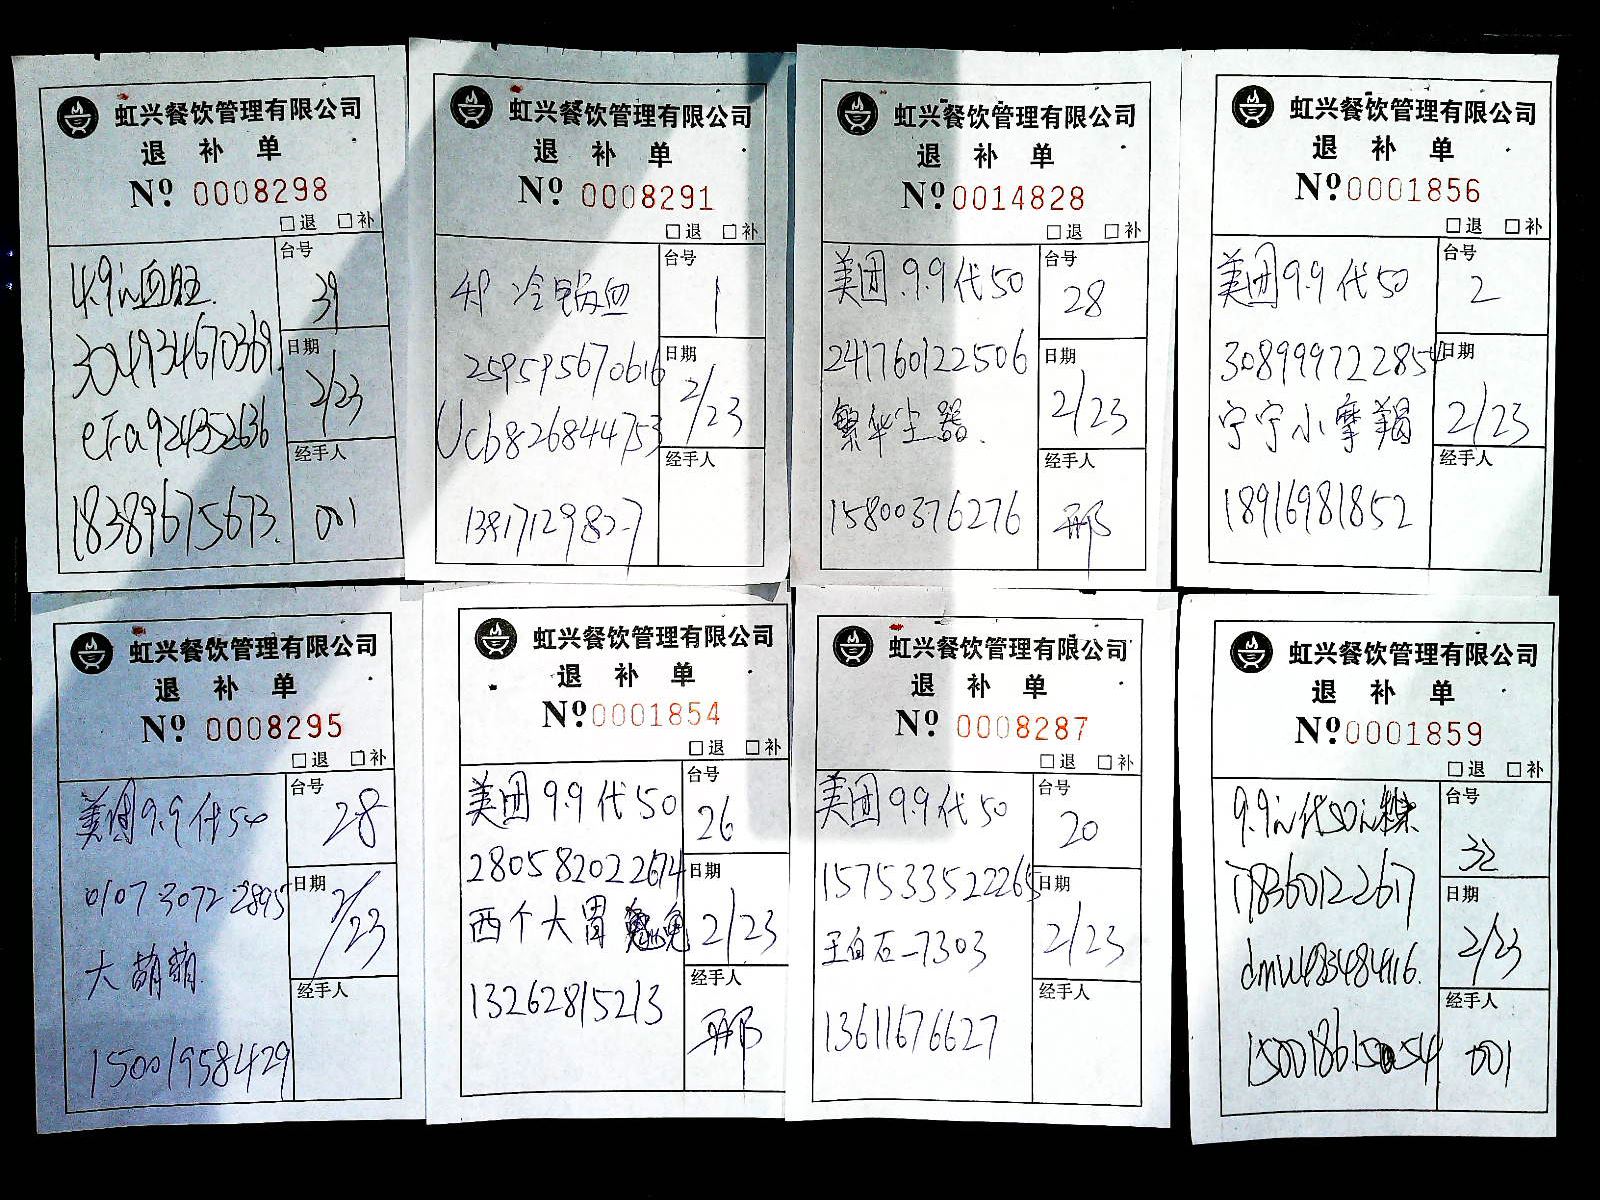 虹兴餐饮管理有限公司
退 补 单
Nº 0008298
□退 □补
台号
39
4.9元血旺
304934670369
日期
2/23
era924352636
经手人
001
18389675673
虹兴餐饮管理有限公司
退 补 单
Nº 0008291
□退 □补
台号
1
冷锅血
259595670616
日期
2/23
Ucb826844753
经手人
13817129827
虹兴餐饮管理有限公司
退 补 单
Nº 0014828
□退 □补
台号
28
美团9.9代50
241760122506
日期
2/23
繁华尘器
经手人
邢
15800376276
虹兴餐饮管理有限公司
退 补 单
Nº 0001856
□退 □补
台号
2
美团9.9代50
308999722854
日期
2/23
宁宁小摩羯
经手人
18916981852
虹兴餐饮管理有限公司
退 补 单
Nº 0008295
□退 □补
台号
28
美团9.9代50
0107 3072 2895
日期
2/23
大萌萌
经手人
15001958429
虹兴餐饮管理有限公司
退 补 单
Nº 0001854
□退 □补
台号
26
美团9.9代50
280582022674
日期
2/23
西个大胃 兔
经手人
邢
13262815213
虹兴餐饮管理有限公司
退 补 单
Nº 0008287
□退 □补
台号
20
美团9.9代50
157533522265
日期
2/23
王白石-7303
经手人
13611676627
虹兴餐饮管理有限公司
退 补 单
Nº 0001859
□退 □补
台号
32
9.9元代50元
178360122617
日期
2/23
dmw483484116
经手人
001